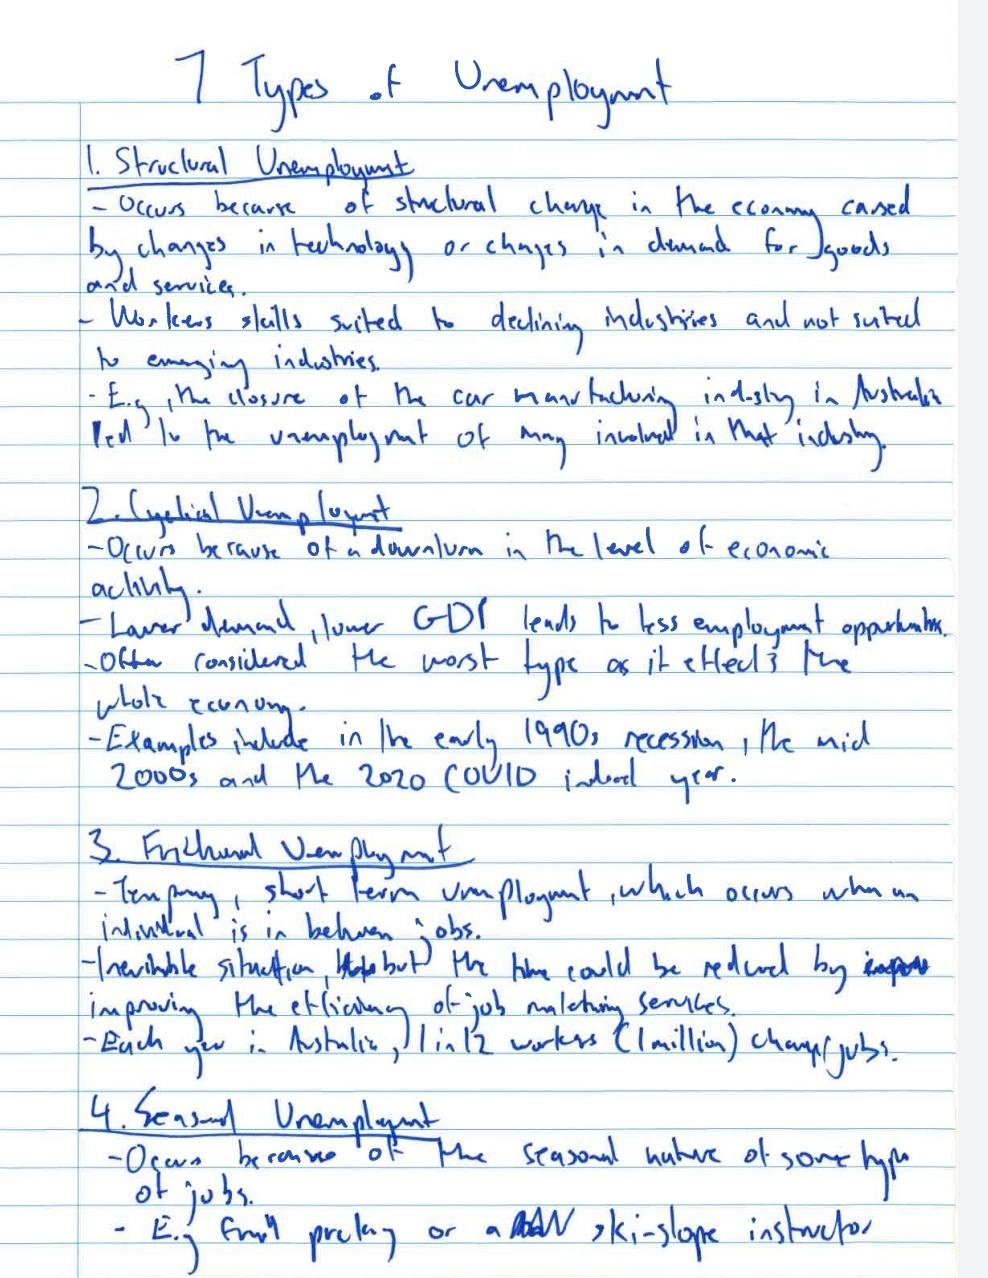 7 Types of Unemployment
1. Structural Unemployment
- Occurs because of structural change in the economy caused
by changes in technology or changes in demand for goods
and services.
- Workers skills suited to declining industries and not suited
to emerging industries.
- E.g, the closure of the car manufacturing industry in Australia
led to the unemployment of many involved in that industry.
2. Cyclical Unemployment
- Occurs because of a downturn in the level of economic
activity.
- Lower demand, lower GDP leads to less employment opportunities.
- Often considered the worst type as it effects the
whole economy.
- Examples include in the early 1990s recession, the mid
2000s and the 2020 COVID year.
3. Frictional Unemployment
- Temporary, short term unemployment, which occurs when an
individual is in between jobs.
- Inevitable situation, but the time could be reduced by
improving the efficiency of job matching services.
- Each year in Australia, 1 in 12 workers (1 million) change jobs.
4. Seasonal Unemployment
- Occurs because of the seasonal nature of some type
of jobs.
- E.g fruit picking or a ski-slope instructor